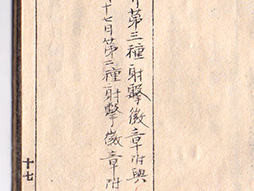 第三種射擊徽章附與
十七日第二種射擊徽章附
十七